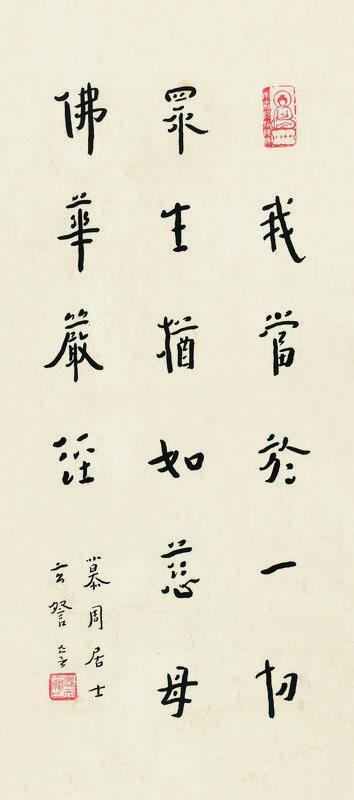 我當於一切
眾生猶如慈母
佛華嚴經
慕周居士
玄詧書